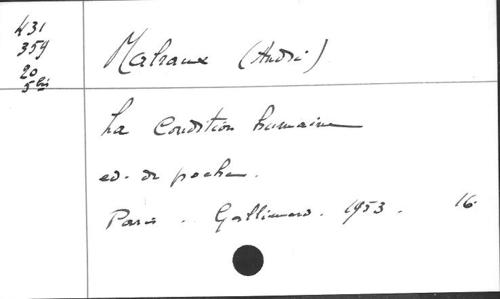 431
359
20
5 bis
Malraux (André)
La Condition humaine
ed. de poche.
Paris. Gallimard. 1953. 16.